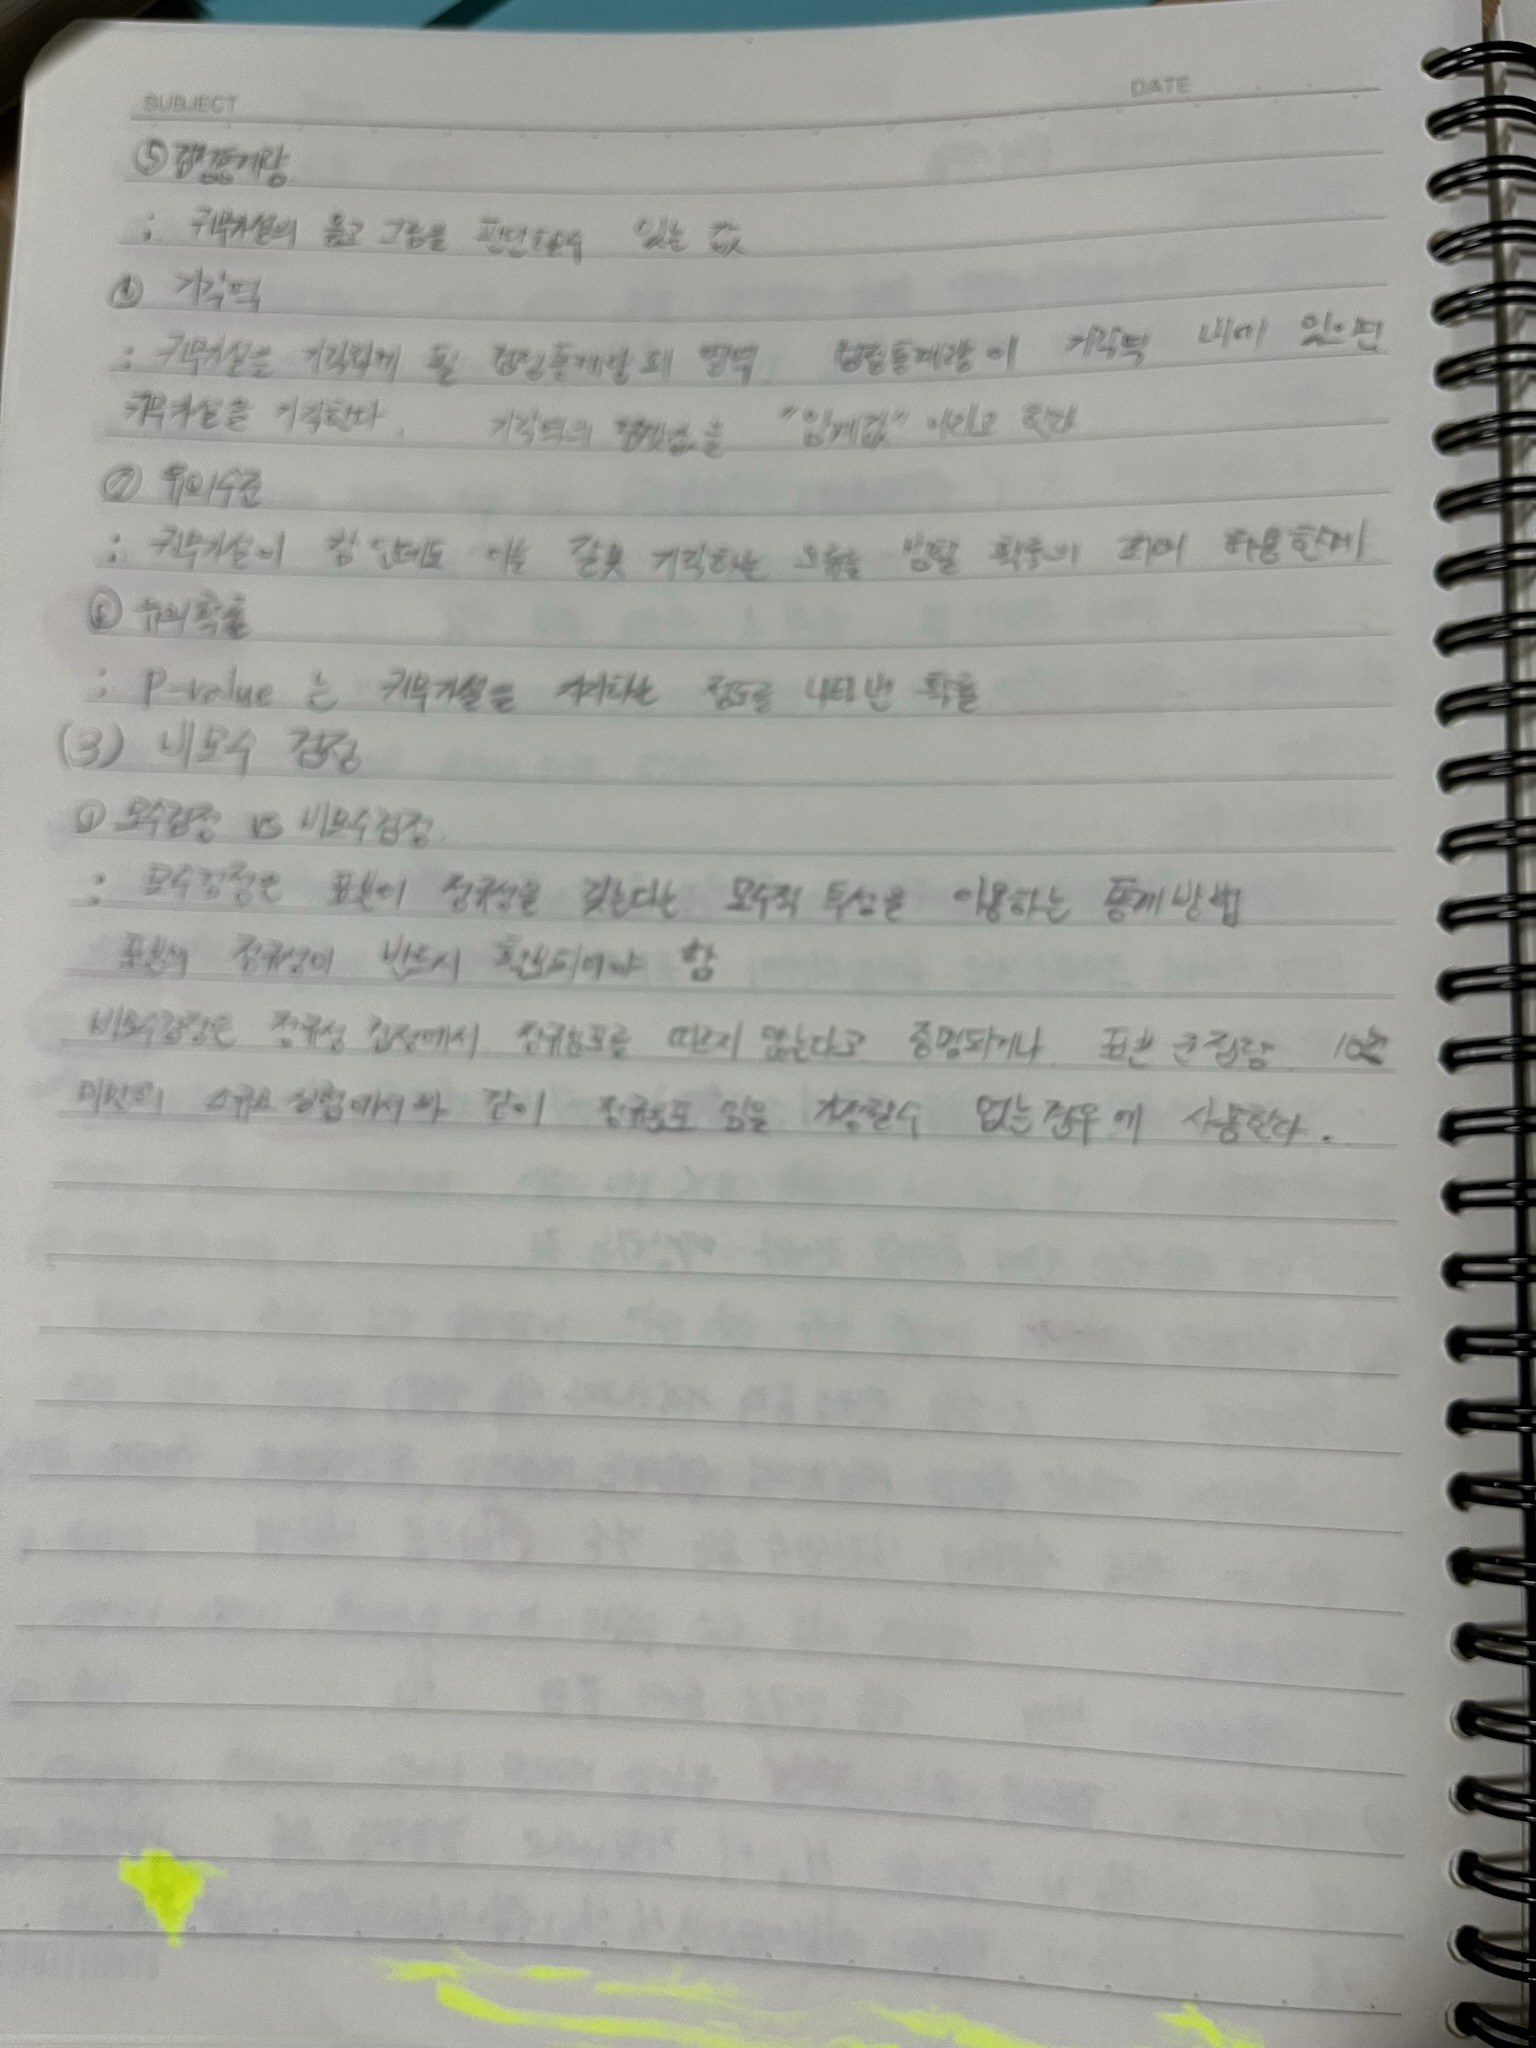 SUBJECT
DATE
⑤ 검정통계량
: 귀무가설의 옳고 그름을 판단할수 있는 값
기각역
: 귀무가설을 기각하게 될 검정통계량의 영역. 검정통계량이 기각역 내에 있으면
귀무가설을 기각한다. 기각역의 경곗값을 "임계값" 이라고 한다
⑦ 유의수준
: 귀무가설이 참인데도 이를 잘못 기각하는 오류를 범할 확률의 최대 허용한계
유의확률
: P-value 는 귀무가설을 지지하는 정도를 나타낸 확률
(3) 비모수 검정
① 모수검정 vs 비모수검정
: 모수검정은 표본이 정규성을 갖는다는 모수적 특성을 이용하는 통계방법
표본의 정규성이 반드시 확보되어야 함
비모수검정은 정규성 검정에서 정규분포를 따르지 않는다고 증명되거나 표본 군집당 10명
미만의 소규모 실험에서와 같이 정규분포 임을 가정할수 없는 경우에 사용한다.